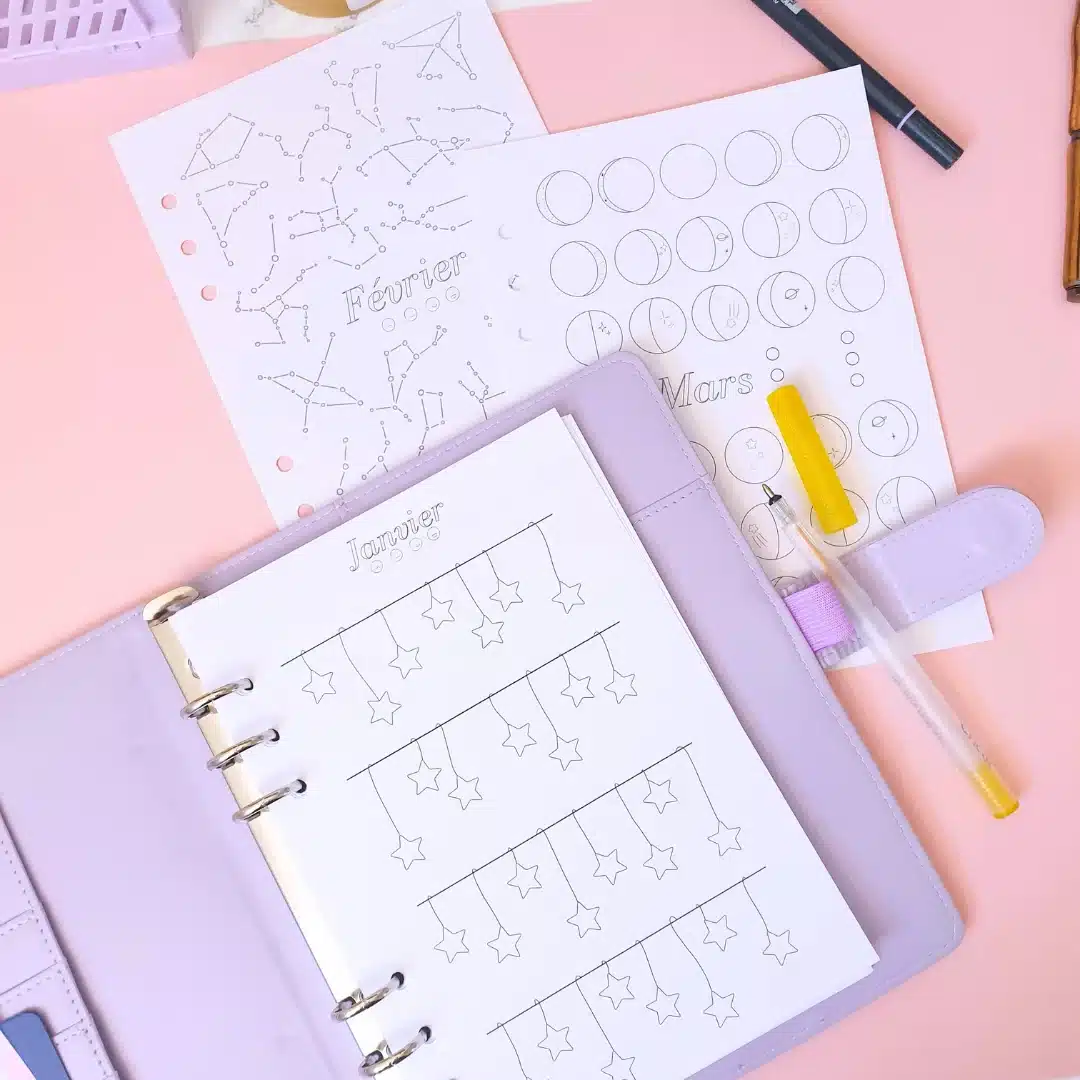 Février
Mars
Janvier